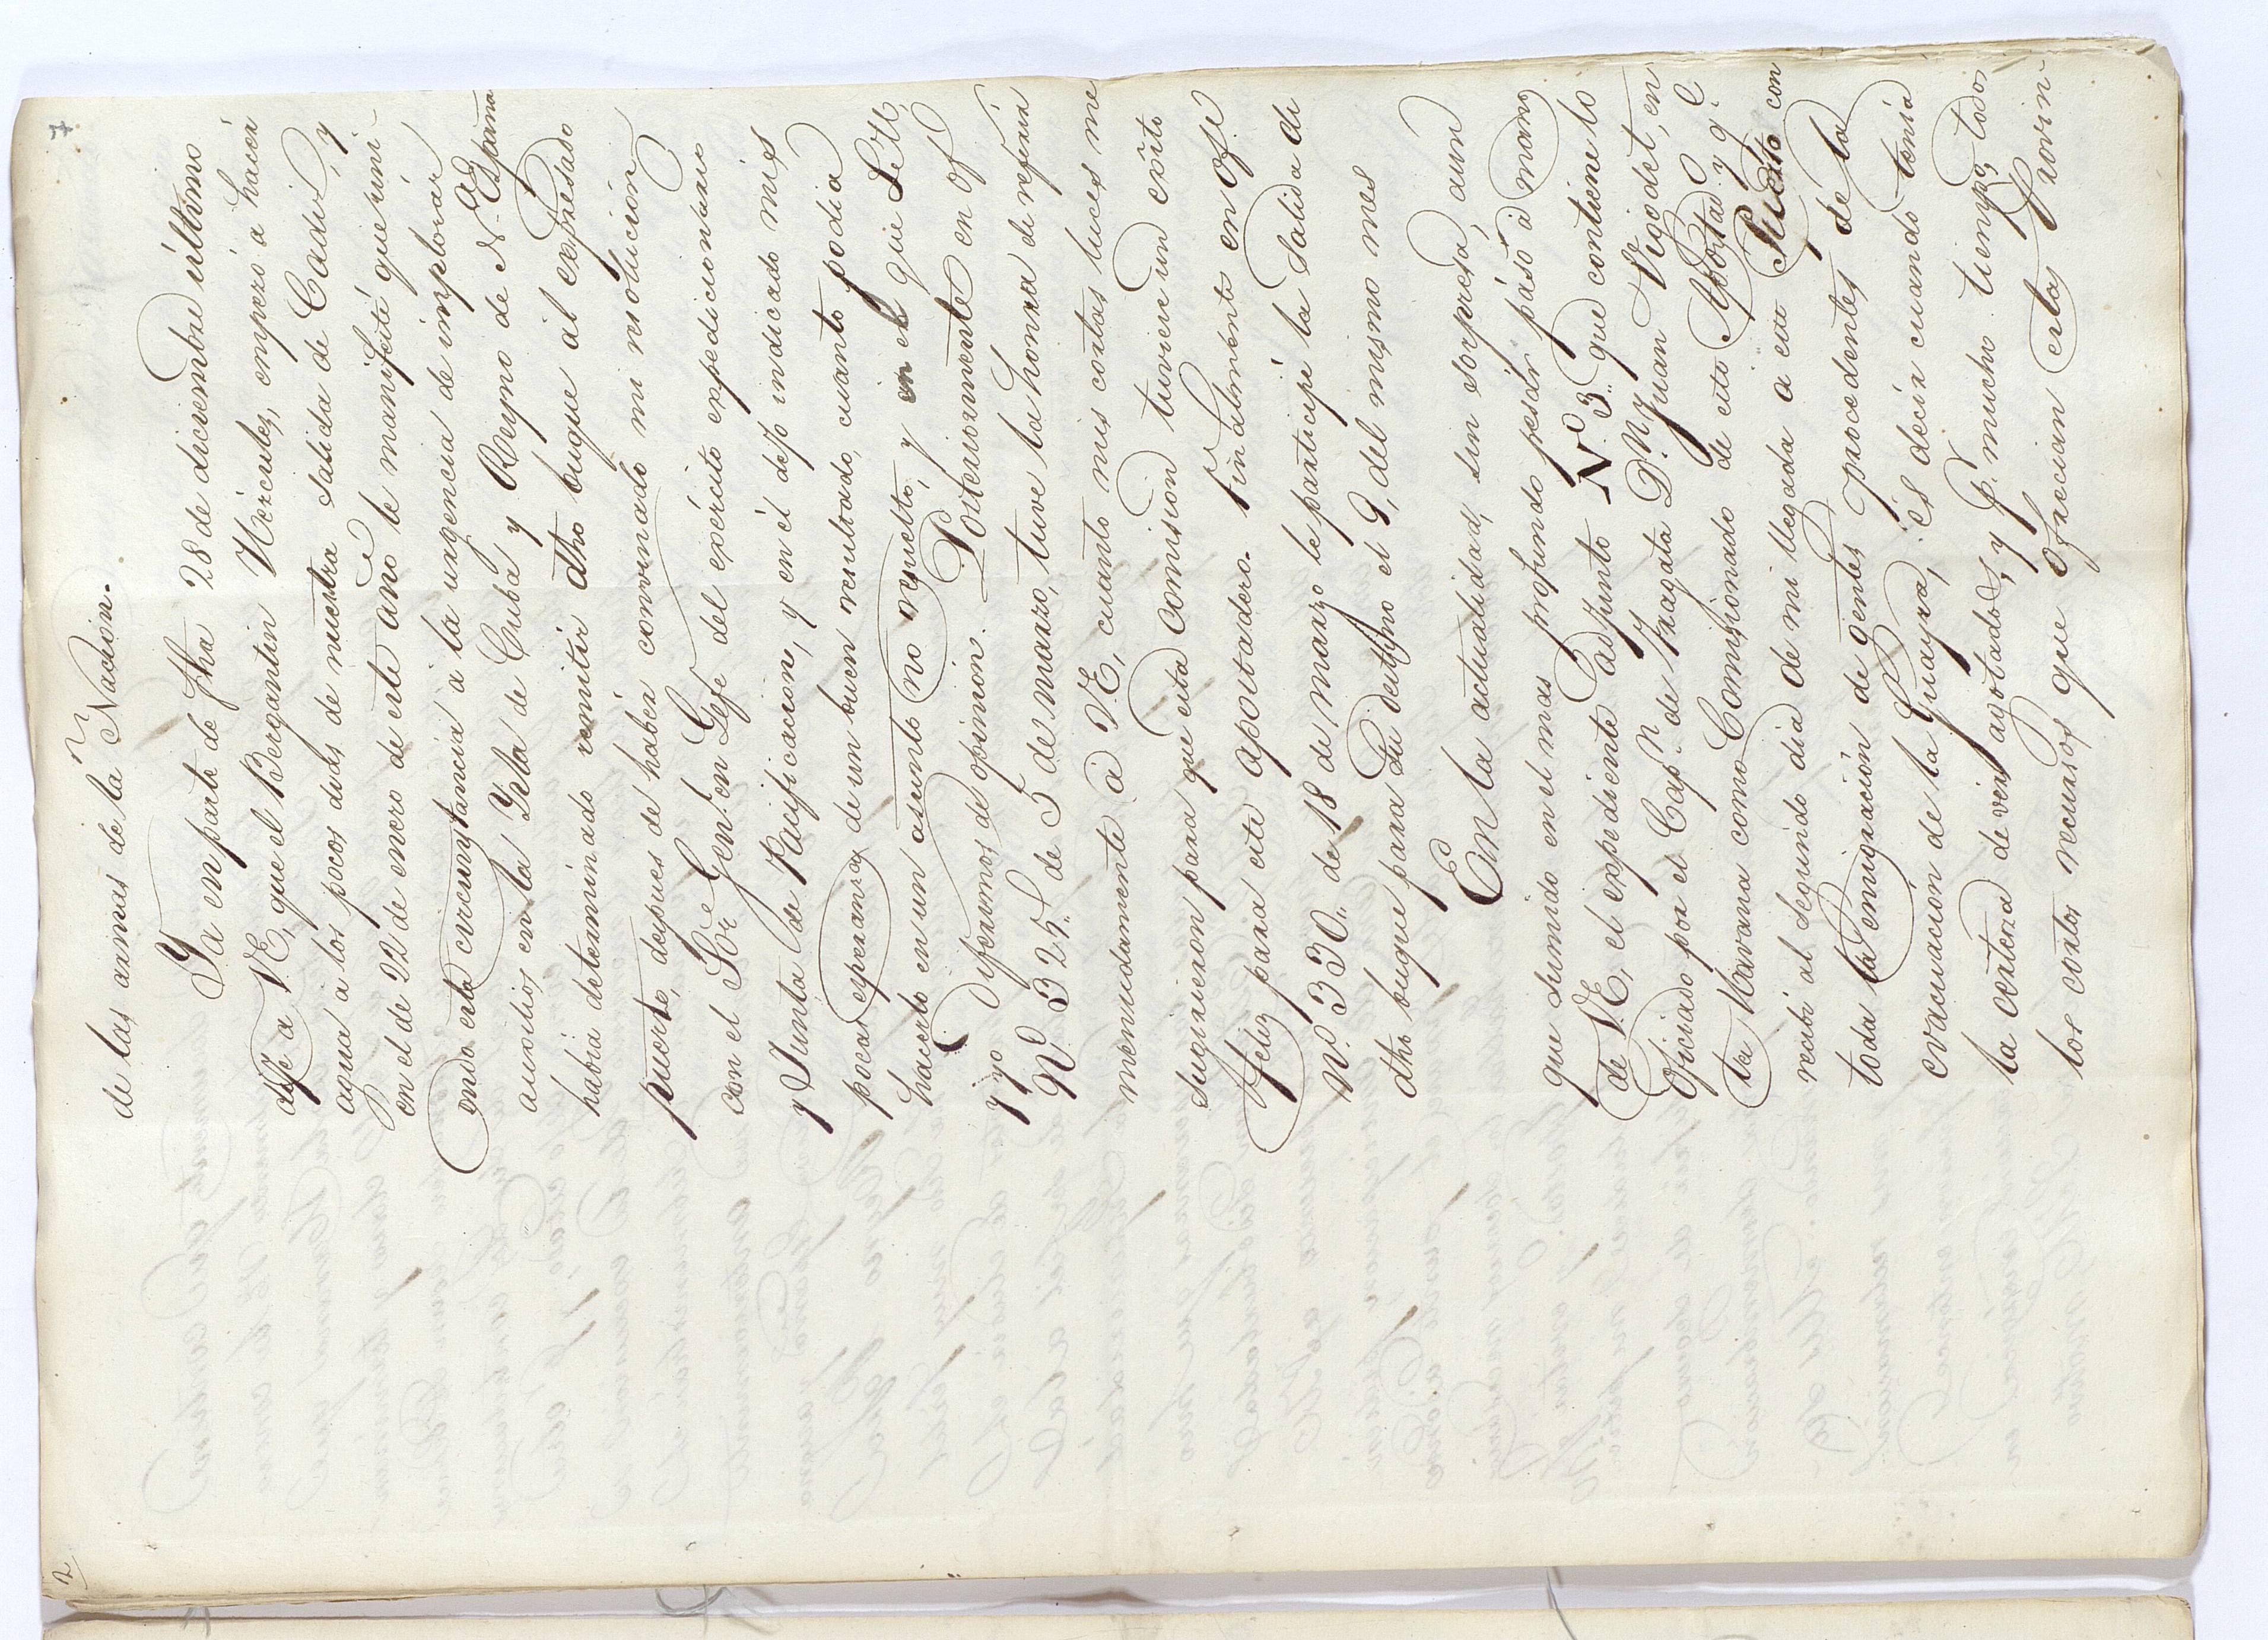 7
de las armas de la Nacion.
Ya en parte de fha 28 de diciembre último
dije a V.E, que el Bergantin Hércules, empezó a hacer
agua a los pocos dias de nuestra salida de Cadiz, y
en el de 22 de enero de este año le manifesté que uni-
endo esta circunstancia a la urgencia de implorar
auxilios en la Ysla de Cuba y Reyno de N. España
habia determinado remitir dho buque al expresado
puerto, despues de haber convinado mi resolucion
con el Sor Gen.l en Gefe del exército expedicionario
y Junta de Pacificacion, y en él dejo indicado mis
pocas esperanzas de un buen resultado, cuanto podia
hacerlo en un asunto no resuelto, y en el que S.E.
y yo diferimos de opinion. Posteriormente en of.o
No 325 de 5 de marzo, tuve la honra de referir
menudamente a V.E, cuanto mis cortas luces me
sugirieron para que esta comision tuviese un exîto
feliz para este apostadero. Finalmente en ofi.o
No. 330.. de 18 de marzo le participé la salida de
dho buque para su destino el 9, del mismo mes
En la actualidad, sin sorpresa, aun
que sumido en el mas profundo pesar paso a manos
de V.E, el expediente adjunto No. 3.. que contiene lo
Oficiado por el Cap.n de Fragata D.n Juan Vigodet, en
la Havana como Comisionado de este Apostad.o y q.e
recibi al segundo dia de mi llegada a este Puerto con
toda la emigracion de gentes procedentes de la
evacuacion de la Guayra; és decir cuando tenia
la certeza de ver agotados, y p.r mucho tiempo, todos
los cortos recursos que ofrecian estas Provin-
2